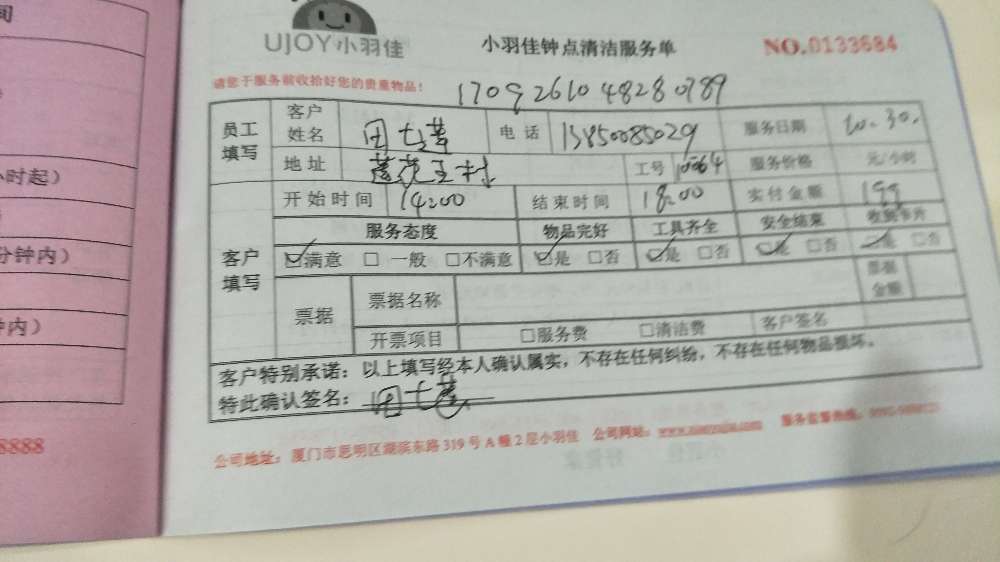 间
小时起）
分钟内）
钟内）
8888
UJOY小羽佳 小羽佳钟点清洁服务单 NO.0133684
请您于服务前收拾好您的贵重物品！ 1709261048280789
员工填写 客户姓名 电话 13850085029 服务日期 10.30.
地址 莲花五村 工号 服务价格 元/小时
客户填写 开始时间 14:00 结束时间 18:00 实付金额 199
服务态度 物品完好 工具齐全 安全结束 收到卡片
☑满意 □一般 □不满意 ☑是 □否 ☑是 □否 ☑是 □否 ☑是 □否
票据 票据名称 票据金额
开票项目 □服务费 □清洁费 客户签名
客户特别承诺：以上填写经本人确认属实，不存在任何纠纷，不存在任何物品损坏。
特此确认签名：
公司地址：厦门市思明区湖滨东路319号A幢2层小羽佳 公司网站： 服务监督热线：